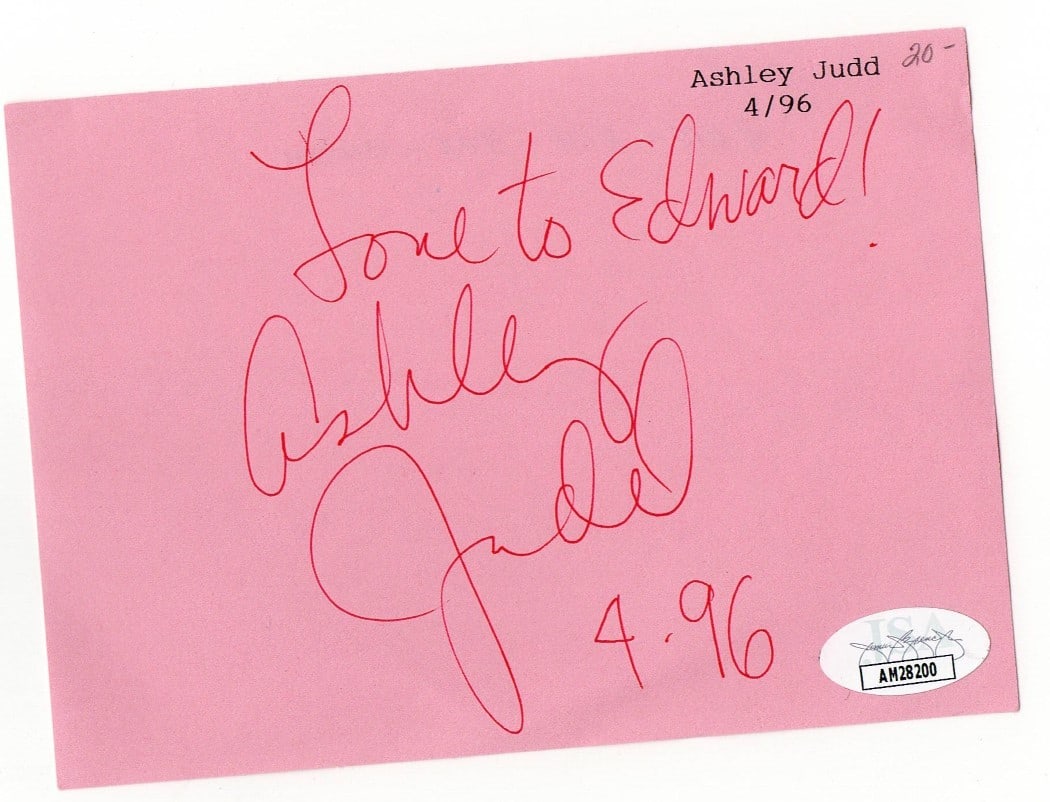 Ashley Judd 20-
4/96
Love to Edward!
Ashley
Judd
4.96
JSA
AM28200